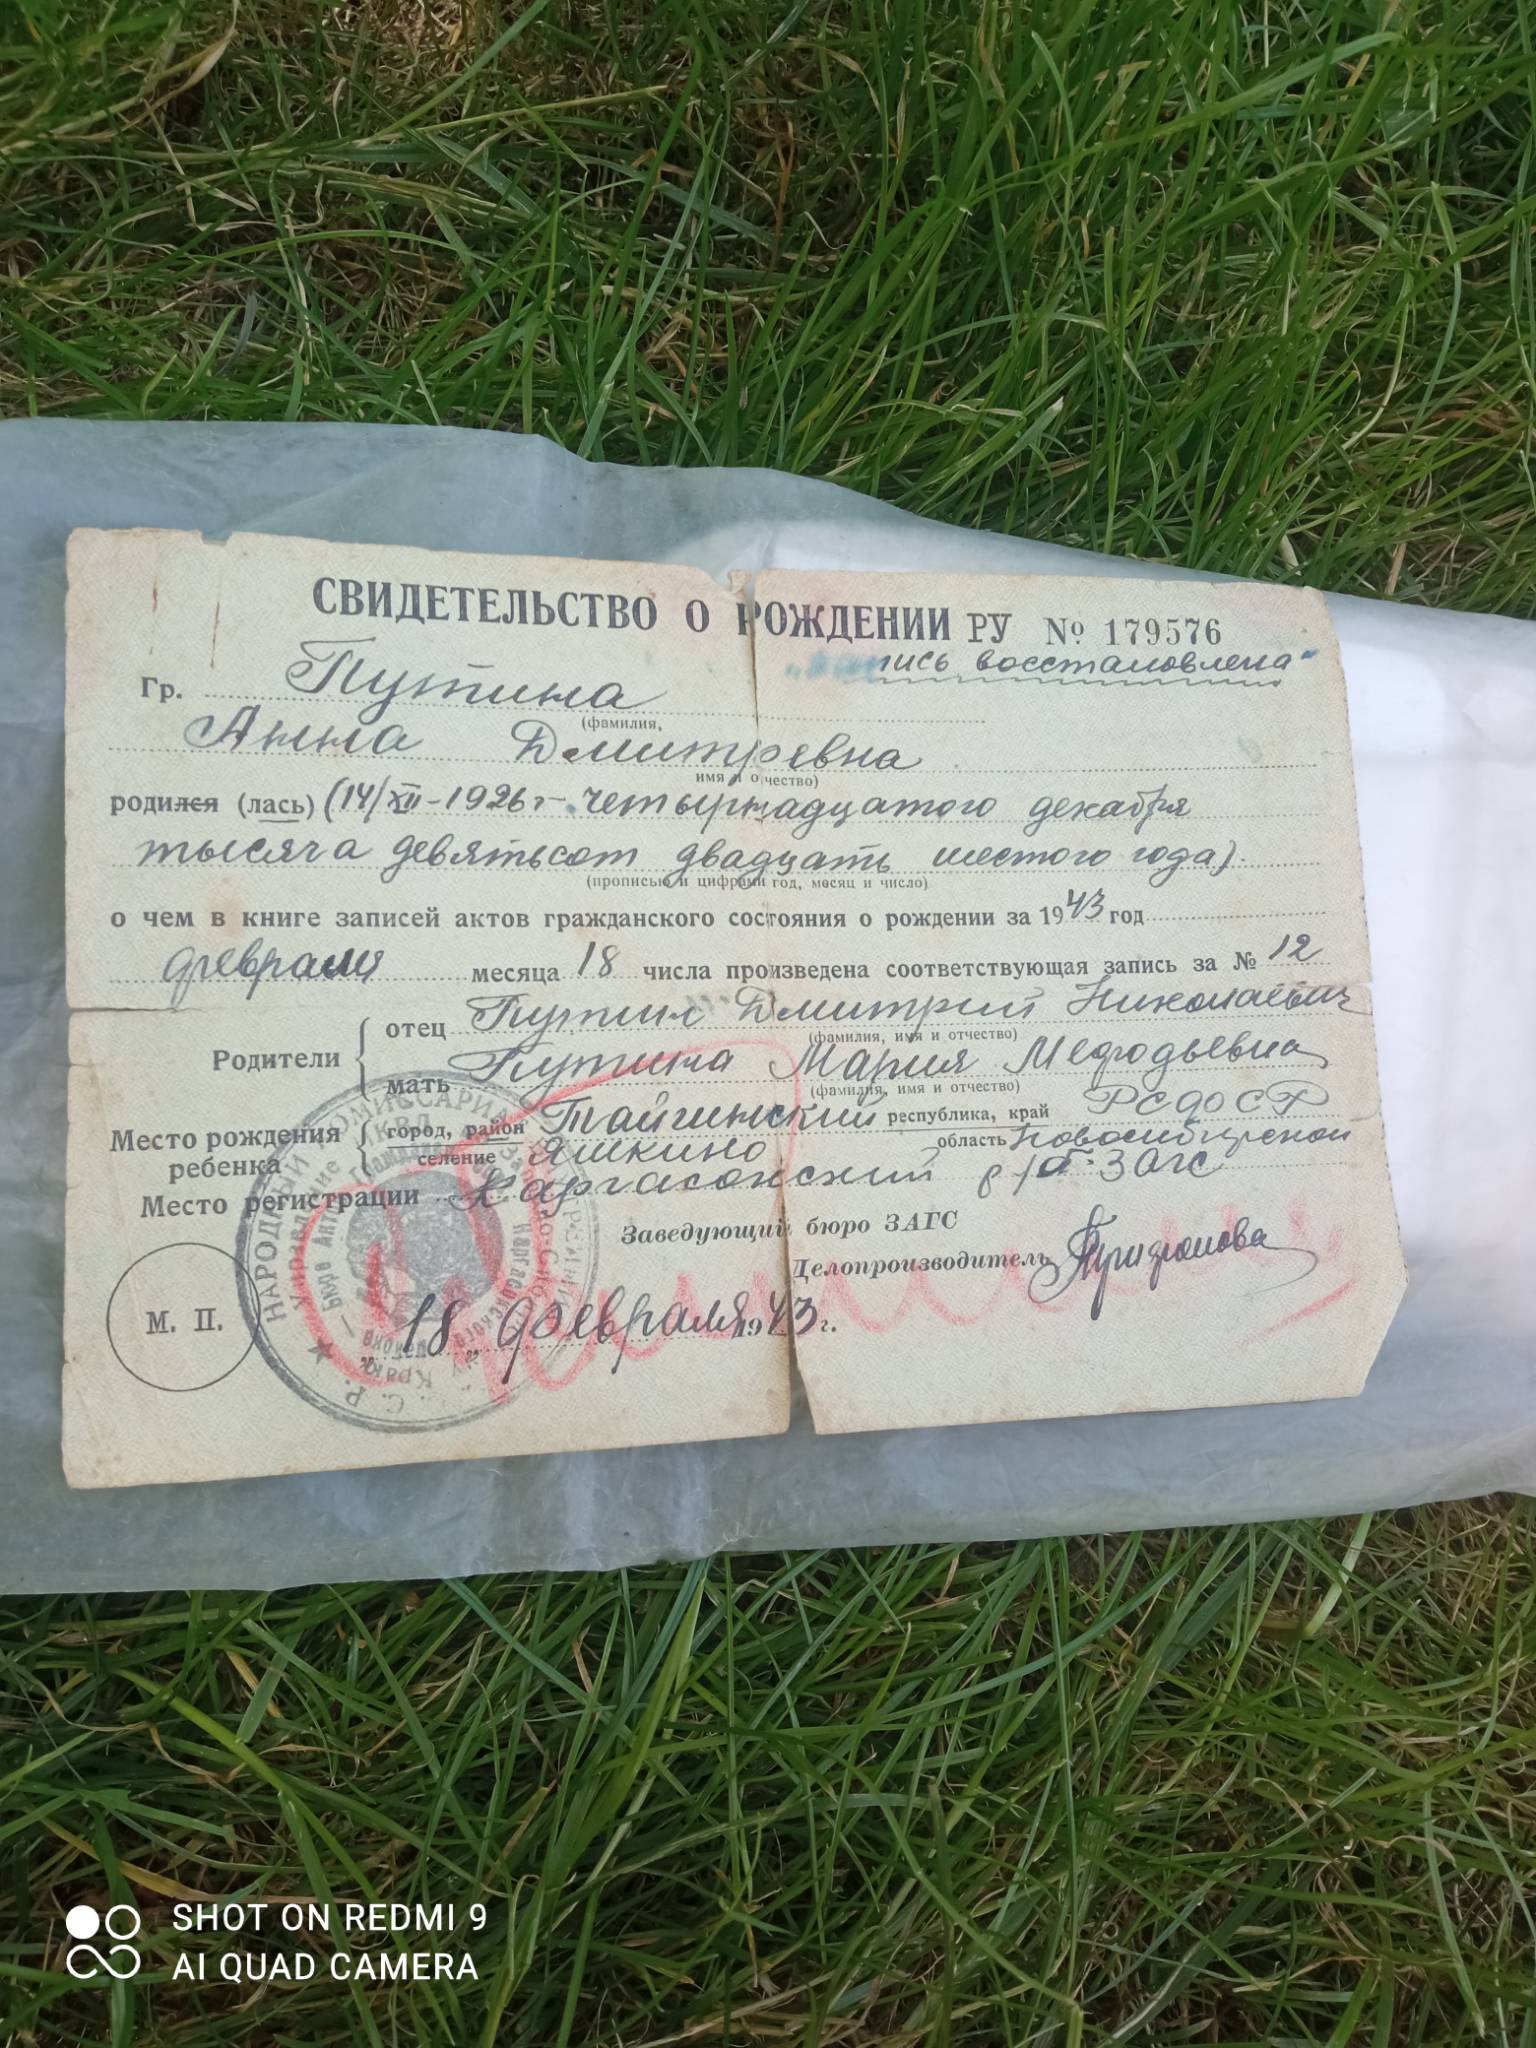 СВИДЕТЕЛЬСТВО О РОЖДЕНИИ РУ № 179576
„Запись восстановлена"
Гр. Путина
(фамилия,
Анна Дмитревна
имя и отчество)
родился (лась) (14/XII-1926г- четырнадцатого декабря
тысяча девятьсот двадцать шестого года).
(прописью и цифрами год, месяц и число)
о чем в книге записей актов гражданского состояния о рождении за 1943 год
февраля месяца 18 числа произведена соответствующая запись за № 12
Родители
отец Путин Дмитрий Николаевич
(фамилия, имя и отчество)
мать Путина Мария Мефодьевна
(фамилия, имя и отчество)
Место рождения ребенка
город, район Тайгинский республика, край РСФСР
селение Яшкино область Новосибирской
Место регистрации Каргасокский р/б. ЗАГС
Заведующий бюро ЗАГС
Делопроизводитель
М. П.
18 февраля 1943 г.
НАРОДНЫЙ КОМИССАРИАТ
Управление
SHOT ON REDMI 9
AI QUAD CAMERA